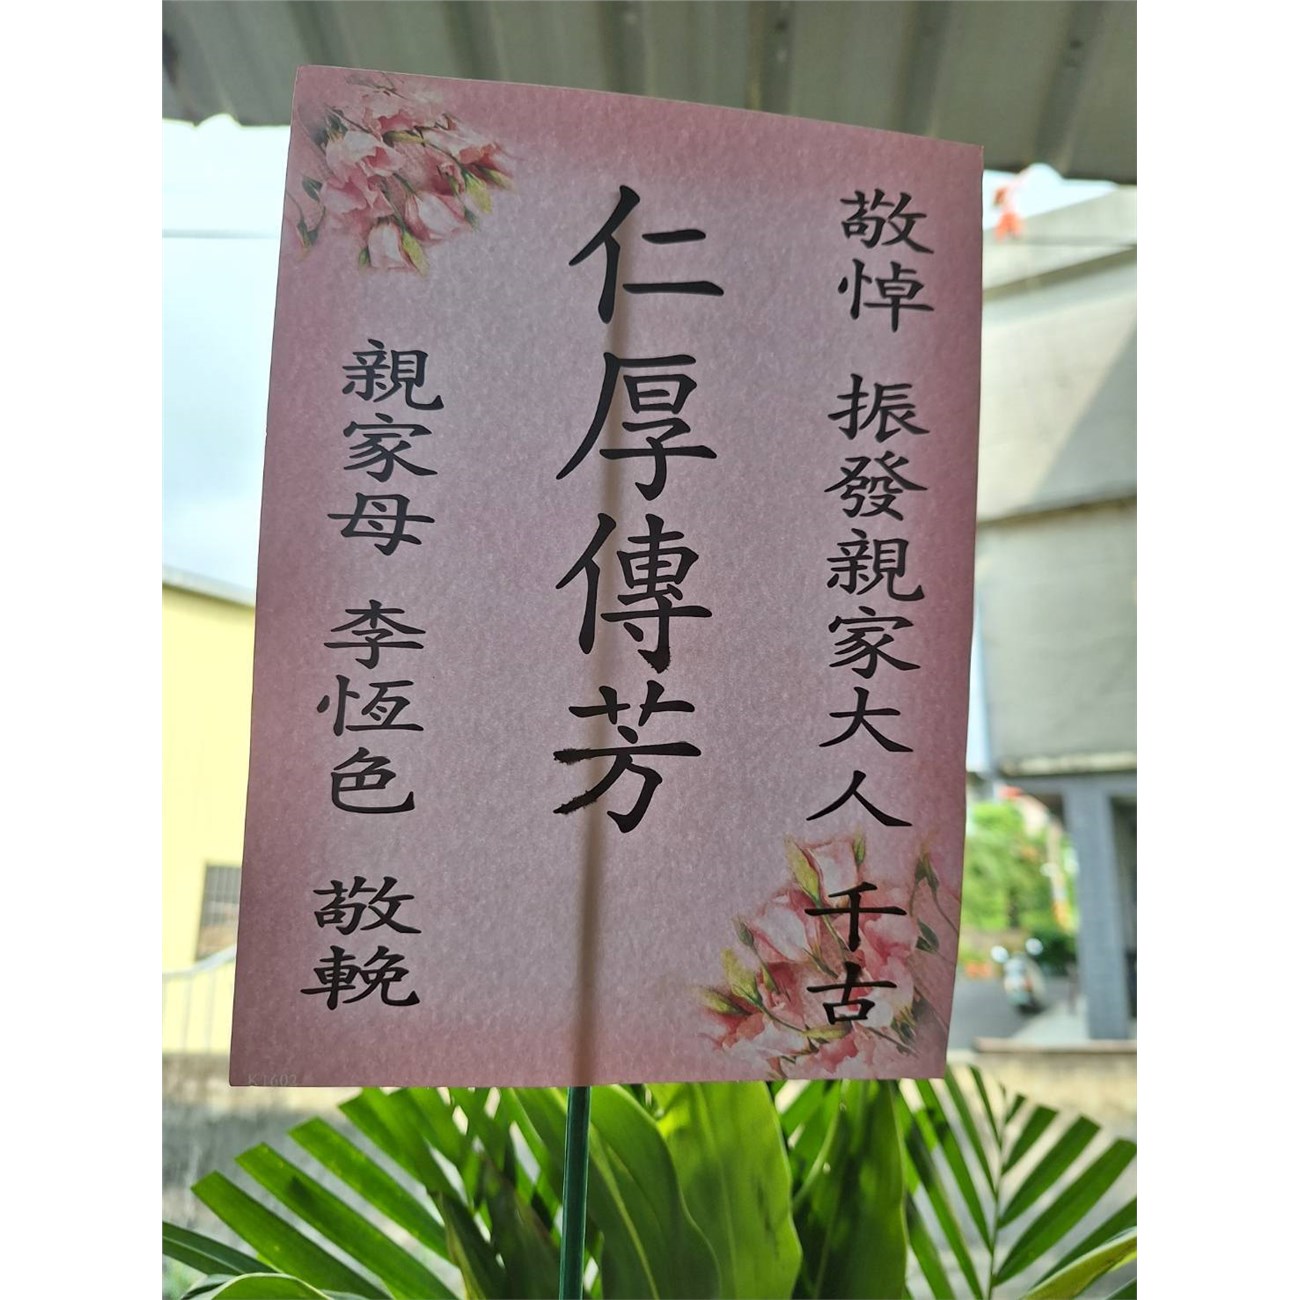 敬悼 振發親家大人 千古
仁厚傳芳
親家母 李恆色 敬輓
K1602